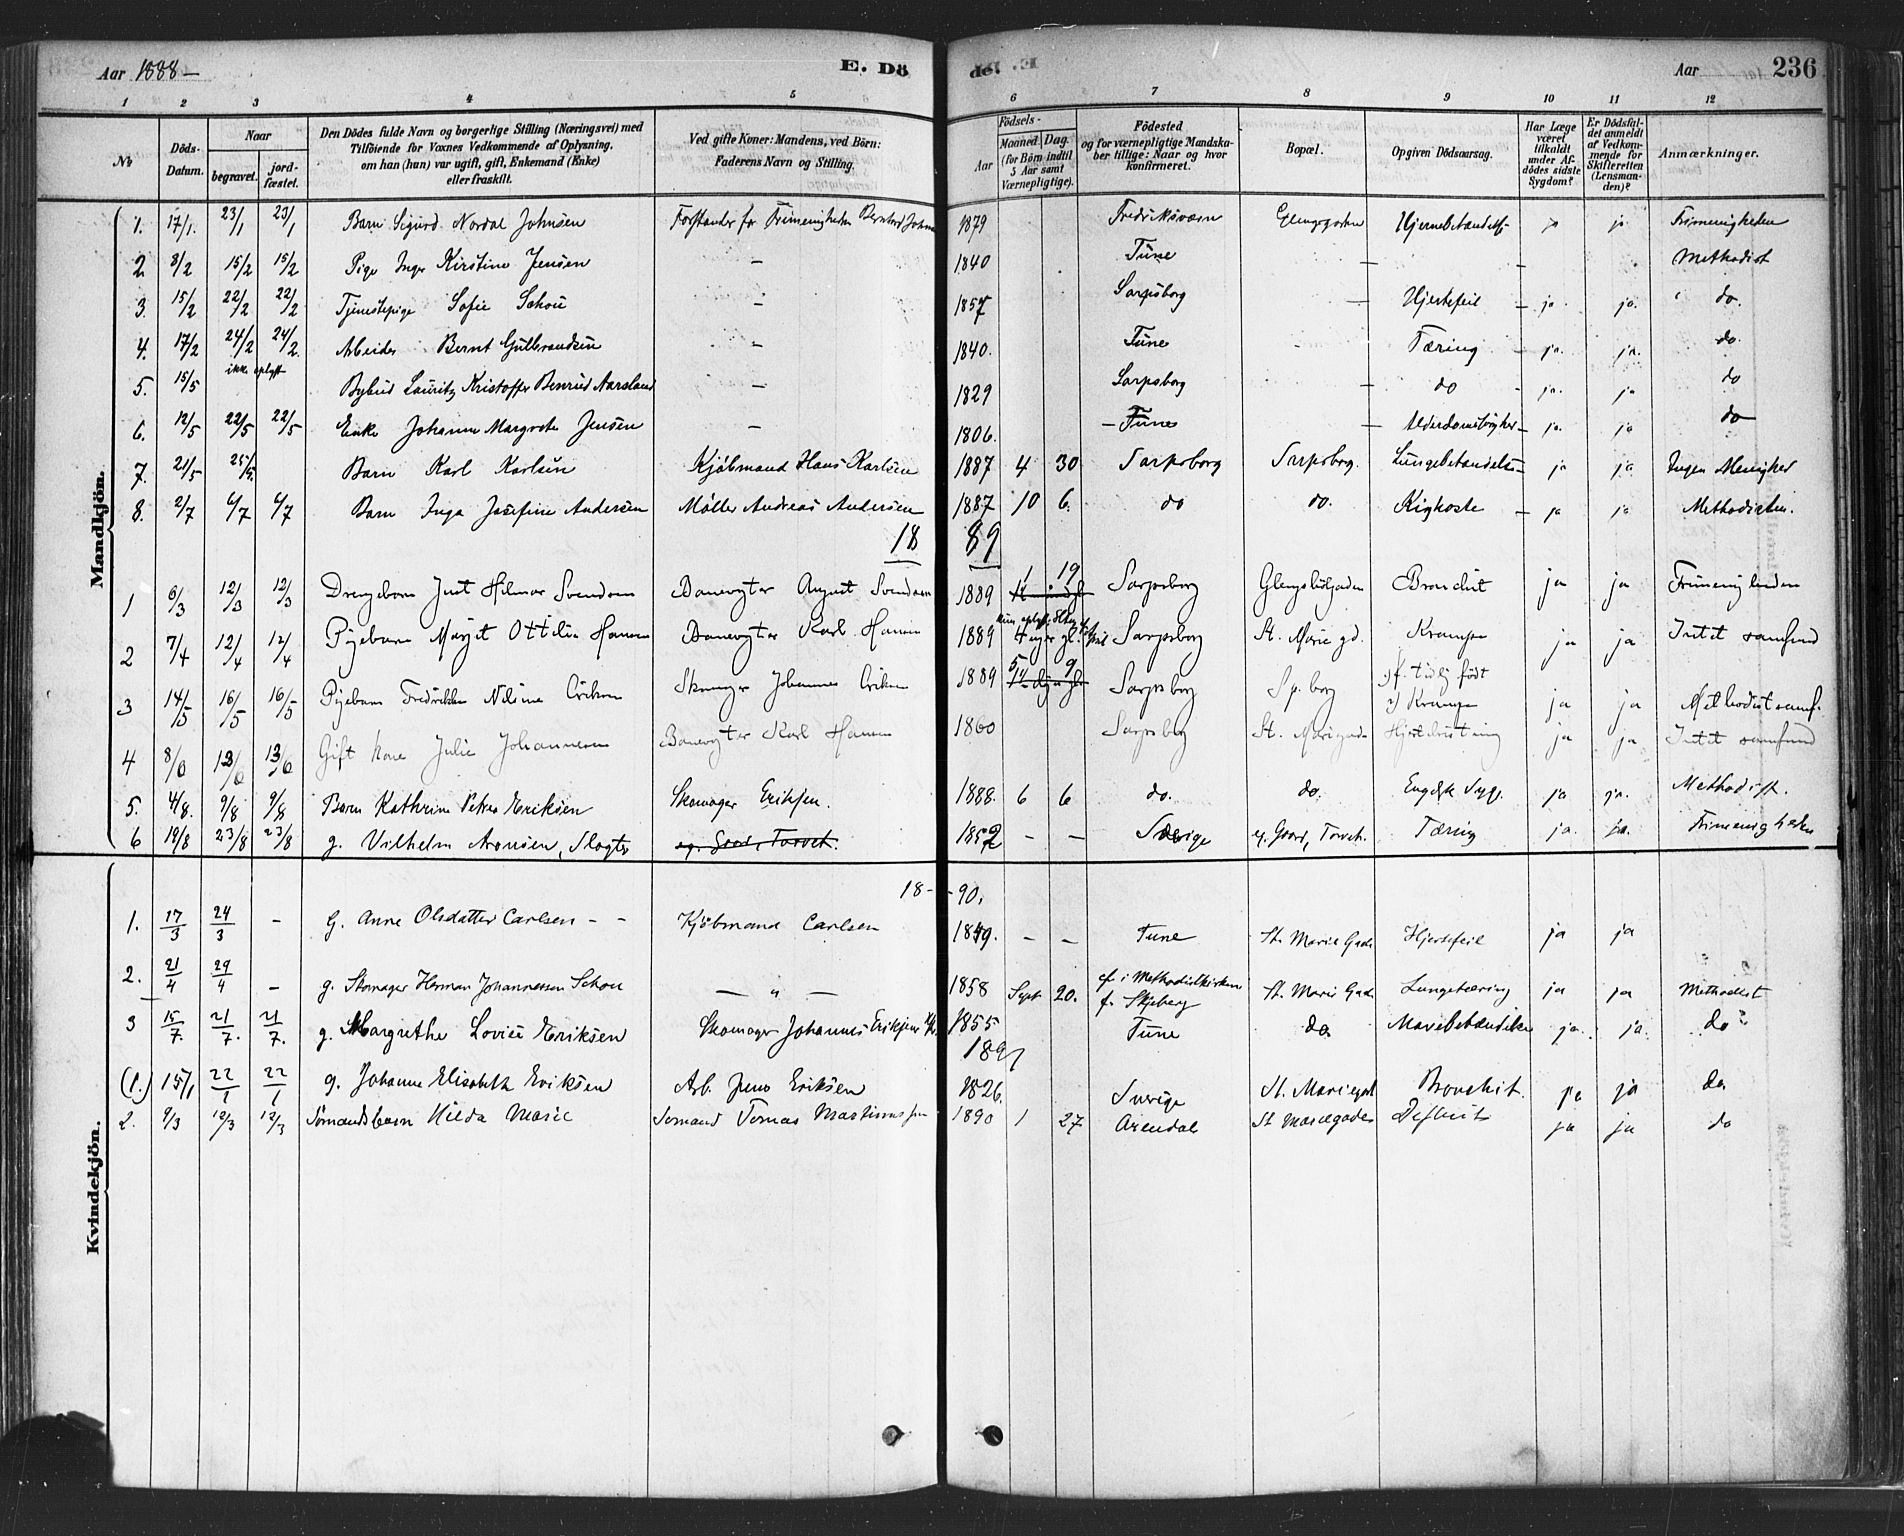 Aar 1888 — E. Dö de. Aar 236
1 2 3 4 5 6 7 8 9 10 11 12
No
Döds-Datum.
Naar
begravet.
jordfæstet.
Den Dödes fulde Navn og borgerlige Stilling (Næringsvei) med
Tilföiende for Voxnes Vedkommende af Oplysning,
om han (hun) var ugift, gift, Enkemand (Enke)
eller fraskilt.
Ved gifte Koner: Mandens, ved Börn:
Faderens Navn og Stilling.
Födsels-
Aar
Maaned. Dag.
(for Börn indtil
5 Aar samt
Værnepligtige).
Födested
og for værnepligtige Mandskaber tillige: Naar og hvor
konfirmeret.
Bopæl.
Opgiven Dödsaarsag.
Har Læge
været
tilkaldt
under Afdödes sidste
Sygdom?
Er Dödsfaldet anmeldt
af Vedkommende for
Skifteretten
(Lensmanden)?
Anmærkninger.
Mandkjön.
1. 17/1. 23/1 23/1 Barn Sigurd Nordal Johnsen Forstander for Frimenigheden Bernhard 1879 Fredriksværn Glengsgaden ja ja Frimenigheden
2. 8/2 15/2 15/2 Pige Inger Kirstine Jensen — 1840 Tune — — Methodist
3. 15/2 22/2 22/2 Tjenestepige Sofie Schou — 1857 Sarpsborg — Hjertefeil — ja. ja. do.
4. 17/2 24/2 24/2 Arbeider Bernt Gulbrandsen — 1840. Tune Tæring — ja. ja. do.
5. 15/5 ikke oplyst Bybud Lauritz Kristoffer Aarsland — 1829 Sarpsborg — do ja. ja do
6. 12/5 22/5 22/5 Enke Johanne Margrete Jensen — 1806. — Tune — ja. ja do
7. 21/5 25/5. Barn Karl Karlsen Kjöbmand Hans Karlsen 1887 4 30 Sarpsborg Sarpsborg. ja ja Ingen Menighed
8. 2/7 6/7 6/7 Barn Inga Josefine Andersen Møller Andreas Andersen 1887 10 6. do do. Kighoste — ja ja Methodisten.
18 89
1 6/3 12/3 12/3 Drengebarn Just Hilmar Svendsen Banevogter August Svendsen 1889 1 19 Sarpsborg ja ja
2 7/4 12/4 12/4 Pigebarn Margit Ottilie Hansen Banevogter Karl Hansen 1889 Sarpsborg St. Marie gd. Krampe ja ja Intet samfund
3 14/5 16/5 16/5 Pigebarn Fredrikke Nilsine Eriksen Skomager Johannes Eriksen 1889 5 9 Sarpsborg Sp. borg 1) f. tidlig født 2) Krampe ja ja Methodistsamf.
4 8/6 13/6 13/6 Gift kone Julie Johannesen Banevogter Karl Hansen 1860 Sarpsborg St. Mariegade ja ja Intet samfund
5. 4/8. 9/8 9/8 Barn Kathrine Petra Eriksen Skomager Eriksen. 1888. 6 6 do. do. Engelsk Syge. ja ja. Methodist.
6 19/8 23/8 23/8 g. Vilhelm Aronsen, Slagter eg. Gaard, Torvet. 1852 — — Sverige eg. Gaard, Torvet. Tæring ja. ja. Frimenigheden
Kvindekjön.
18- -90.
1. 17/3 24/3 - G. Anne Olsdatter Carlsen - - Kjöbmand Carlsen 1849. — — Tune St. Marie Gade Hjertefeil ja ja
2. 21/4 29/4 - g. Skomager Herman Johannessen Schou — „ — 1858 Sept 20. cf. i Methodistkirken f. Skjeberg St. Marie Gade Lungetæring ja ja Methodist
3 15/7. 21/7. 21/7. g. Margrethe Lovise Eriksen Skomager Johannes Eriksens 1855 Tune do. ja. ja. do
1891
(1.) 15/1 22/1 22/1 g. Johanne Elisabeth Eriksen Arb. Jens Eriksen 1826. Sverige St. Mariegd Bronchit. ja ja do
2. 9/3 12/3 12/3 Sömandsbarn Hilda Marie Sömand Tomas 1890 1 27 Arendal St Mariegade ja ja do